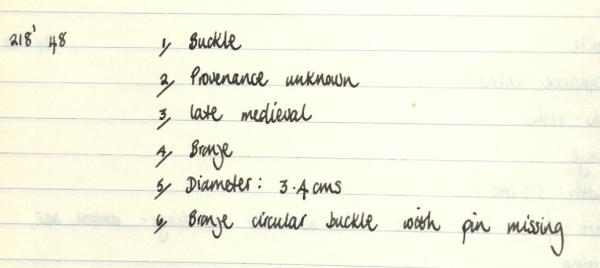 218' 48 1, Buckle
2, Provenance unknown
3, late medieval
4, Bronze
5, Diameter: 3.4 cms
6, Bronze circular buckle with pin missing